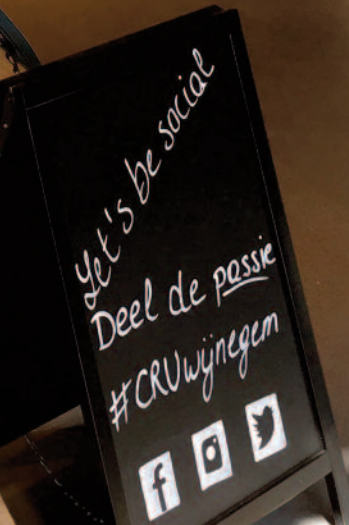 Let's be social
Deel de passie
#CRUwijnegem